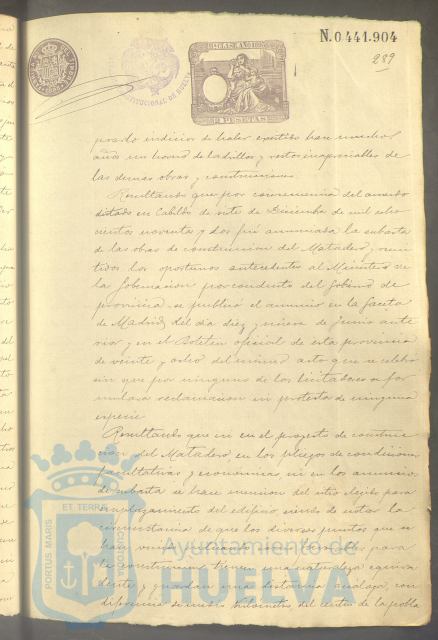 N.0.441.904
289
11ª CLASE. AÑO 1893
2 PESETAS
CONSTITUCIONAL DE HUELVA
indicios de haber existido hace muchos
años un horno de ladrillos, y restos inapreciables de
las demas obras y construcciones.
Resultando que por consecuencia del
en Cabildo de siete de Diciembre de mil ocho
cientos noventa y dos fué anunciada la subasta
de las obras de construccion del Matadero, remi
tidos los oportunos antecedentes al Ministerio de
la Gobernacion por conducto del Gobierno de
provincia, se publicó el anuncio en la Gaceta
de Madrid del dia diez y nueve de Junio ante
rior, y en el Boletin oficial de esta provincia
de veinte y ocho del mismo acto que se celebró
sin que por ninguno de los licitadores se for
mulara reclamacion ni protesta de ninguna
especie.
Resultando que ni en el proyecto de construc
cion del Matadero, en los pliegos de condiciones
facultativas y económicas ni en los anuncios
de subasta se hace mencion del sitio elegido para
emplazamiento del edificio siendo de notar la
circunstancia de que los diversos puntos que se
han venido para
la construccion tienen una naturaleza equiva
lente y guardan una distancia analoga, con
diferencia de medio kilometro, del centro de la pobla
PORTUS MARIS ET TERRAE CUSTODIA
Ayuntamiento de
HUELVA